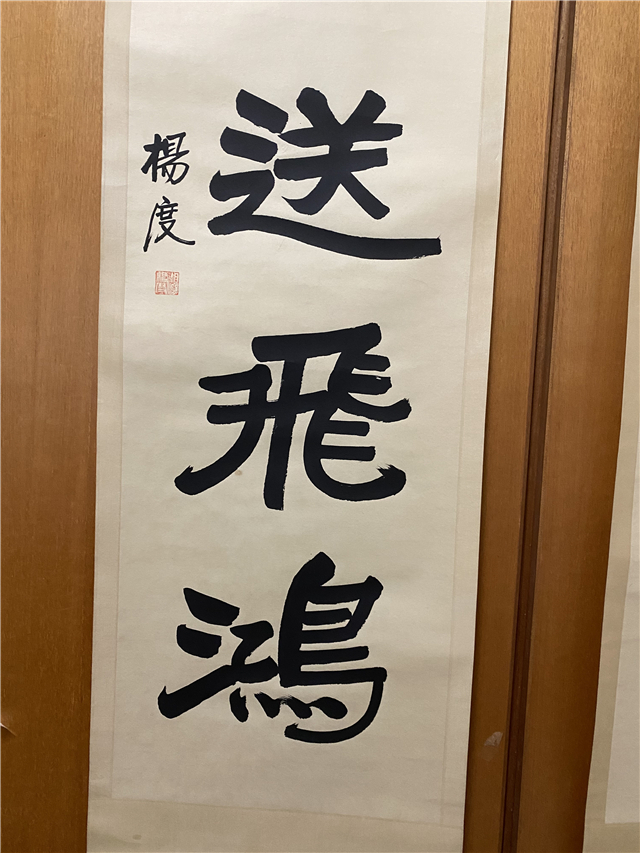 送飛鴻
楊度